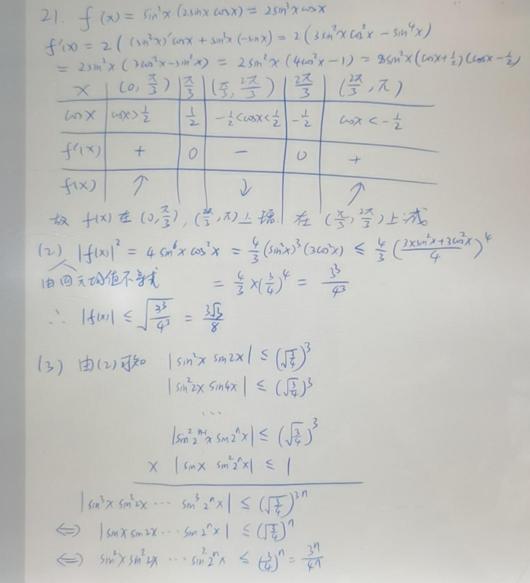 21. f(x) = sin²x(2sinx cosx) = 2sin³x cosx
f'(x) = 2((sin³x)'cosx + sin³x(-sinx)) = 2(3sin²x cos²x - sin⁴x)
= 2sin²x(3cos²x - sin²x) = 2sin²x(4cos²x - 1) = 8sin²x(cosx + 1/2)(cosx - 1/2)
x (0, π/3) π/3 (π/3, 2π/3) 2π/3 (2π/3, π)
cosx cosx > 1/2 1/2 -1/2 < cosx < 1/2 -1/2 cosx < -1/2
f'(x) + 0 - 0 +
f(x) ↑ ↓ ↑
故 f(x) 在 (0, π/3), (2π/3, π) 上增. 在 (π/3, 2π/3) 上减.
(2) |f(x)|² = 4sin⁶x cos²x = 4/3 (sin²x)³(3cos²x) ≤ 4/3 (3×sin²x+3cos²x / 4)⁴
由四元均值不等式 = 4/3 × (3/4)⁴ = 3³/4³
∴ |f(x)| ≤ √(3³/4³) = 3√3/8
(3) 由(2)可知 |sin²x sin2x| ≤ (√(3/4))³
|sin²2x sin4x| ≤ (√(3/4))³
...
|sin²2ⁿ⁻¹x sin2ⁿx| ≤ (√(3/4))³
× |sinx sin²2ⁿx| ≤ 1
|sin³x sin³2x ⋯ sin³2ⁿx| ≤ (√(3/4))³ⁿ
⇔ |sinx sin2x ⋯ sin2ⁿx| ≤ (√(3/4))ⁿ
⇔ sin²x sin²2x ⋯ sin²2ⁿx ≤ (3/4)ⁿ = 3ⁿ/4ⁿ